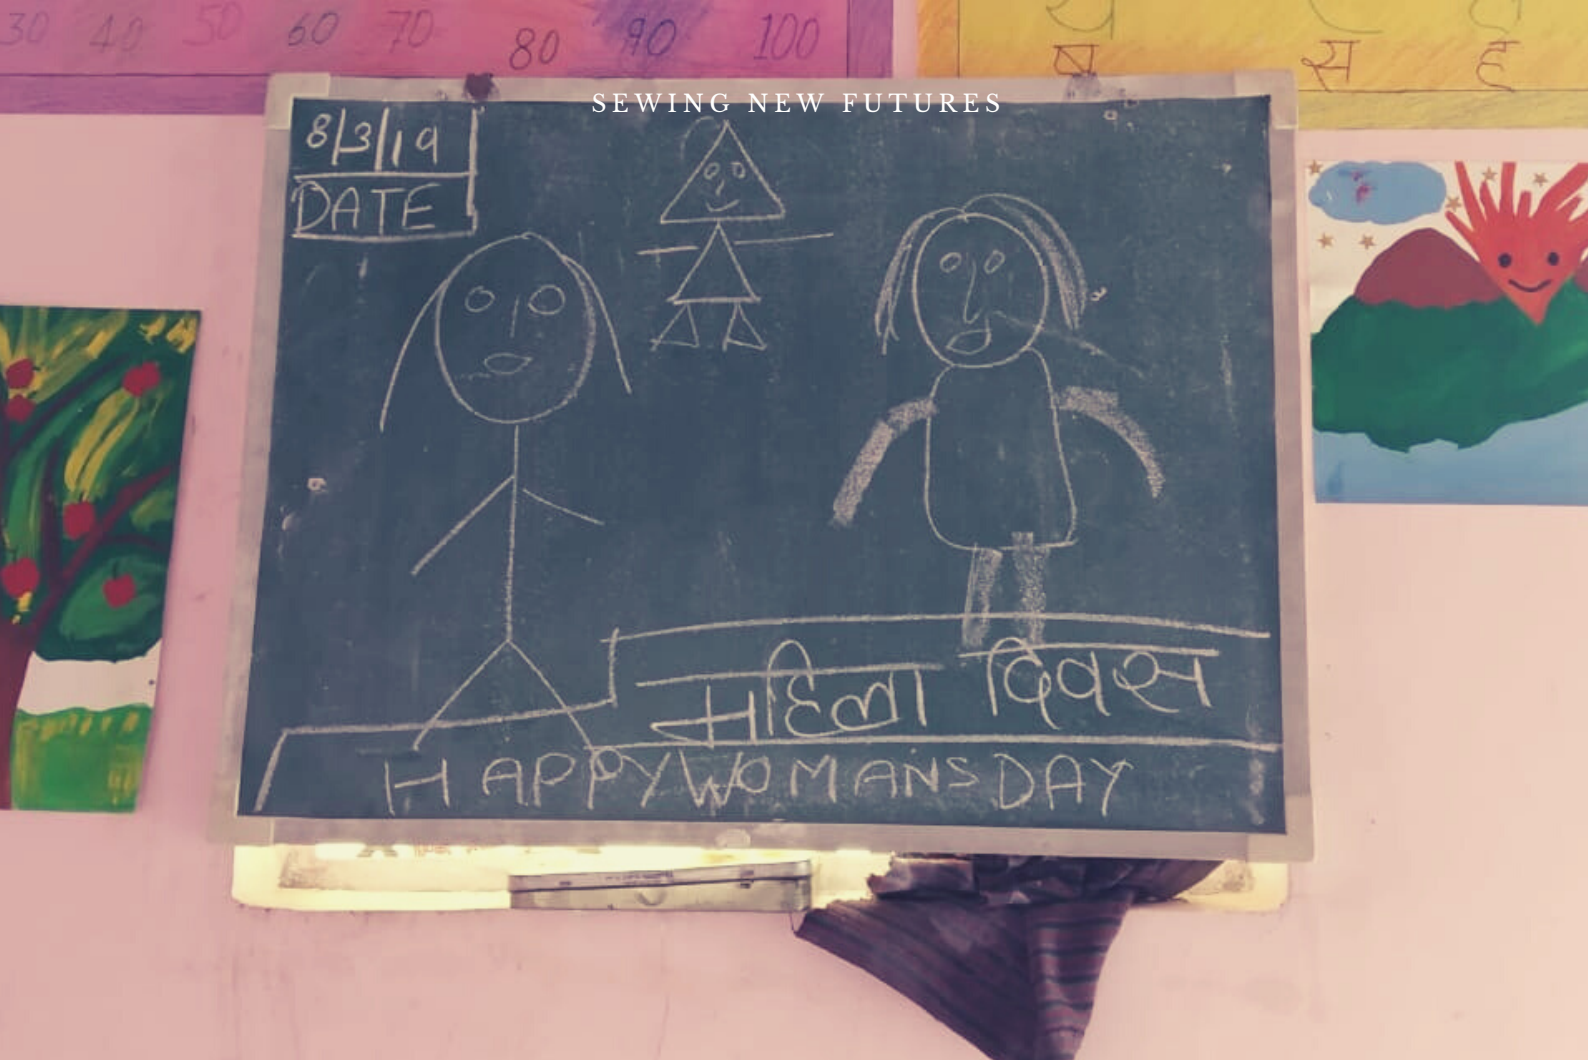 30 40 50 60 70 80 90 100
ष स ह
SEWING NEW FUTURES
8/3/19
DATE
महिला दिवस
HAPPY WOMANS DAY